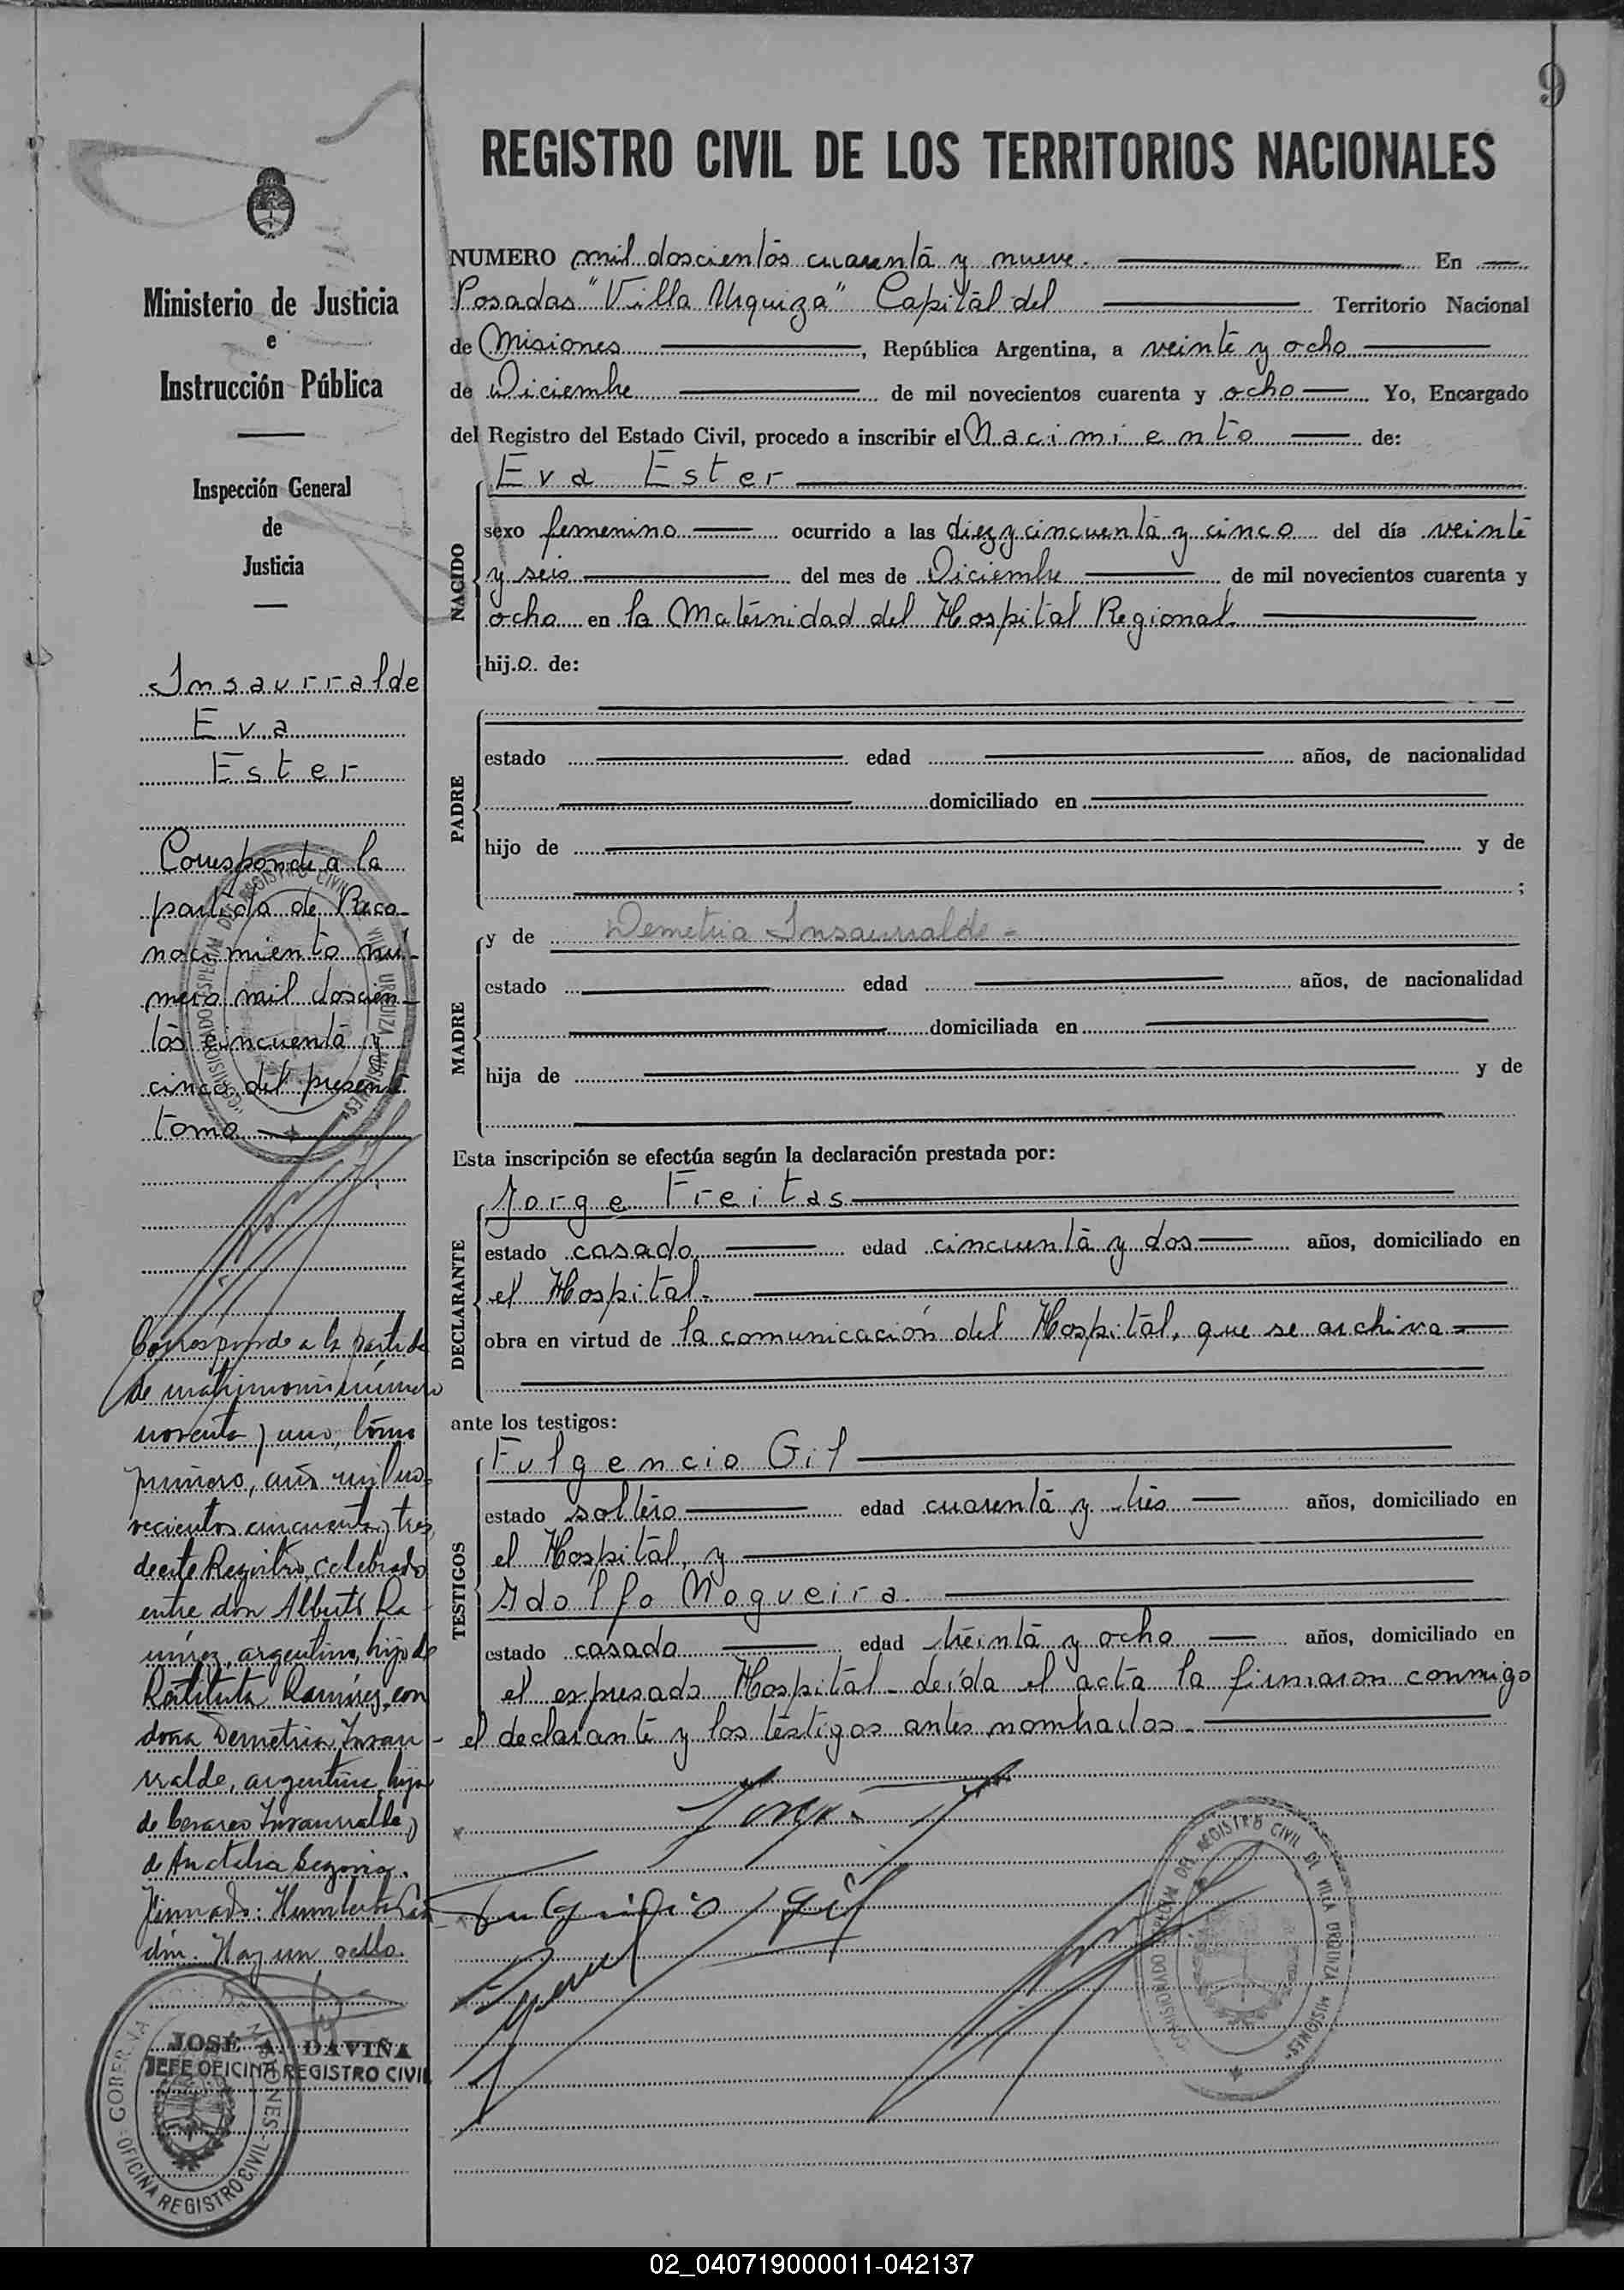 9
REGISTRO CIVIL DE LOS TERRITORIOS NACIONALES
Ministerio de Justicia
e
Instrucción Pública
Inspección General
de
Justicia
Insaurralde
Eva
Ester
Corresponde a la
partida de Reco-
nocimiento nú-
mero mil doscien-
tos cincuenta y
cinco del presente
tomo
Corresponde a la partida
de matrimonio número
noventa y uno, tomo
primero, año mil no-
vecientos cincuenta y tres
de este Registro, celebrado
entre don Alberto Ra-
mírez, argentino, hijo de
Restituta Ramírez, con
doña Demetria Insau-
rralde, argentina, hija
de Cesareo Insaurralde y
de Segovia.
Firmado: Humberto
Hay un sello.
JOSÉ A. DAVIÑA
JEFE OFICINA REGISTRO CIVIL
OFICINA REGISTRO CIVIL
NUMERO mil doscientos cuarenta y nueve. En
Posadas "Villa Urquiza" Capital del Territorio Nacional
de Misiones, República Argentina, a veinte y ocho
de Diciembre de mil novecientos cuarenta y ocho Yo, Encargado
del Registro del Estado Civil, procedo a inscribir el Nacimiento de:
NACIDO
Eva Ester
sexo femenino ocurrido a las diez y cincuenta y cinco del día veinte
y seis del mes de Diciembre de mil novecientos cuarenta y
ocho en la Maternidad del Hospital Regional.
hij.o. de:
PADRE
estado edad años, de nacionalidad
domiciliado en
hijo de y de
;
MADRE
y de Demetria Insaurralde -
estado edad años, de nacionalidad
domiciliada en
hija de y de
Esta inscripción se efectúa según la declaración prestada por:
DECLARANTE
Jorge Freitas
estado casado edad cincuenta y dos años, domiciliado en
el Hospital.
obra en virtud de la comunicación del Hospital, que se archiva
ante los testigos:
TESTIGOS
Fulgencio Gil
estado soltero edad cuarenta y tres años, domiciliado en
el Hospital, y
Adolfo Nogueira.
estado casado edad treinta y ocho años, domiciliado en
el expresado Hospital - leída el acta la firmaron conmigo
el declarante y los testigos antes nombrados.
Jorge
Fulgencio Gil
COMISIONADO ESPECIAL DEL REGISTRO CIVIL DE VILLA URQUIZA MISIONES
02_040719000011-042137